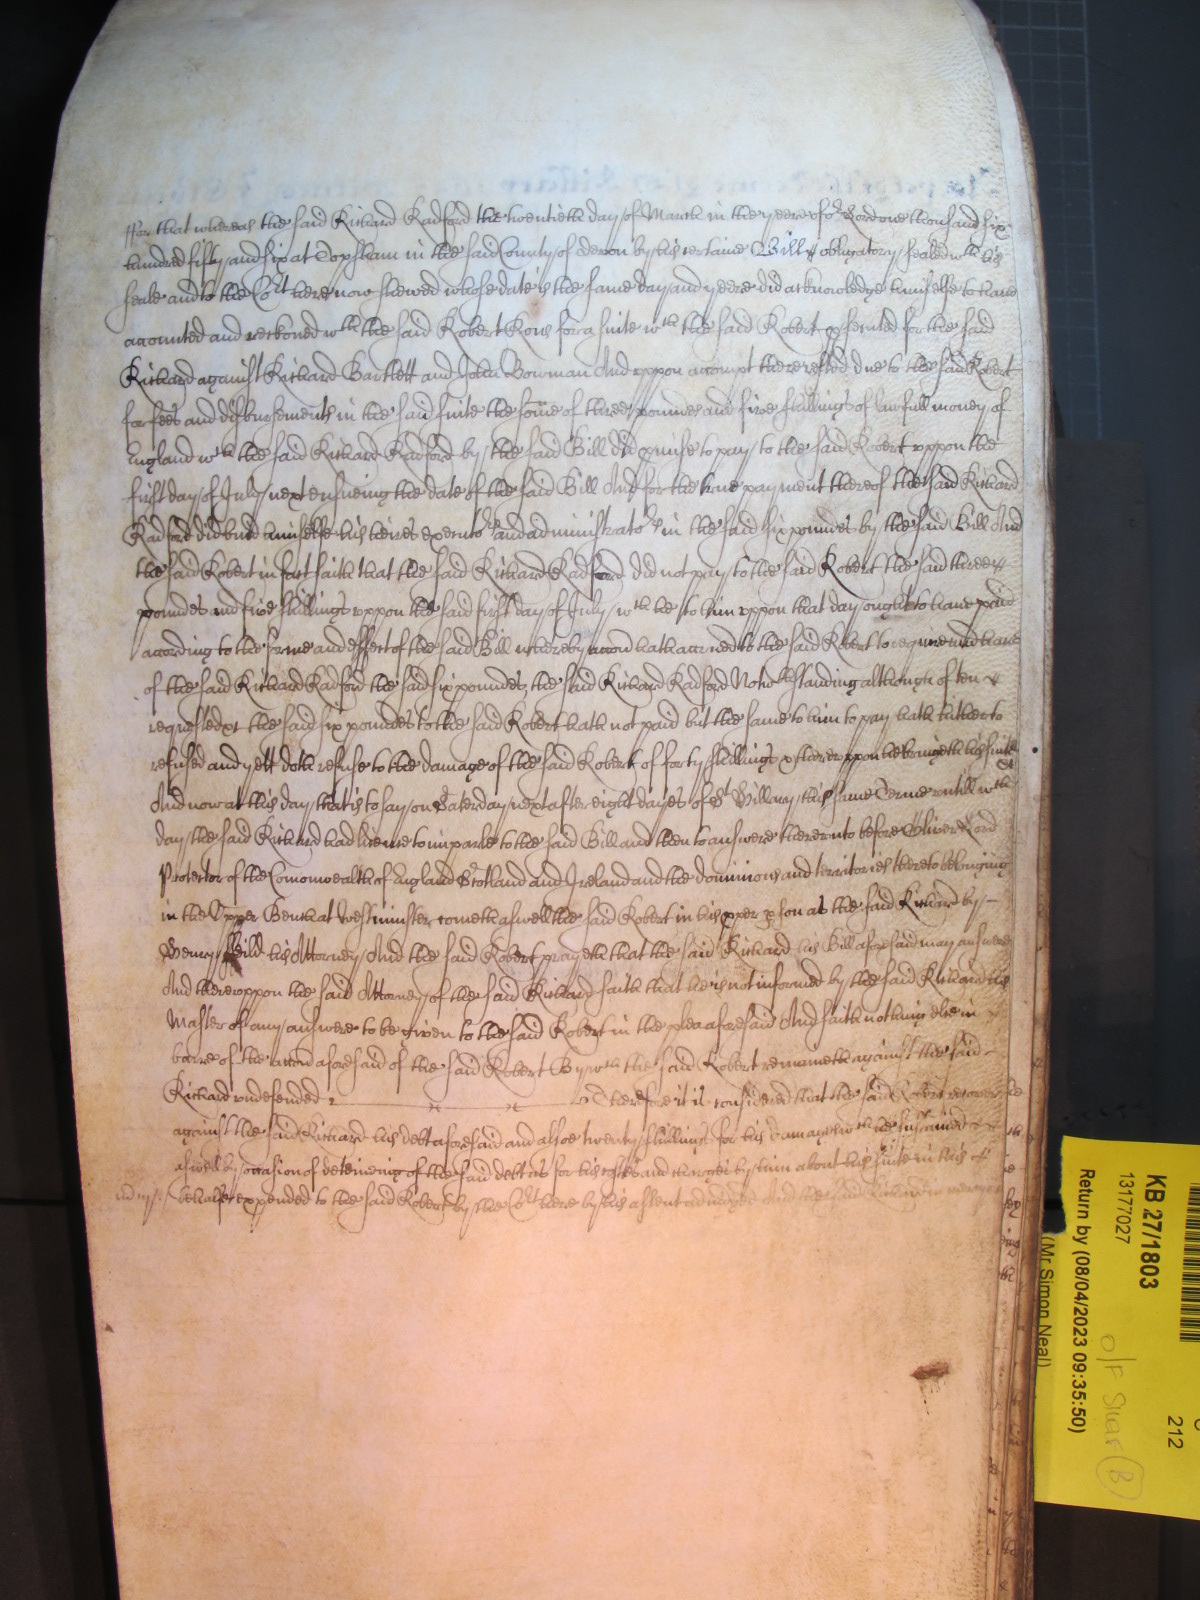 ffor that whereas the said Richard Radford the twentieth day of March in the yeere of or Lord one thousand six
hundred fifty and six at Topsham in the said County of Devon by his certaine Bill obligatory sealed wth his
seale and to the Cort here now shewed whose date is the same day and yeere did acknowledge himselfe to have
accounted and reckoned wth the said Robert Kons for a suite wth the said Robert psecuted for the said
Richard against Richard Bartlett and John Bowman And uppon accompt there rested due to the said Robert
for fees and disbursements in the said suite the some of three poundes and five shillings of lawfull money of
England wch the said Richard Radford by the said Bill did pmise to pay to the said Robert uppon the
first day of July next ensueing the date of the said Bill And for the true payment thereof the said Richard
Radford did bind himselfe his heires executors and administrators in the said six poundes by the said Bill And
the said Robert in fact saith that the said Richard Radford did not pay to the said Robert the said three
poundes and five shillings uppon the said first day of July wch he to him uppon that day ought to have paid
according to the forme and effect of the said Bill whereby accon hath accrued to the said Robert to require and have
of the said Richard Radford the said six poundes the said Richard Radford Notwthstanding although often
requested &c the said six poundes to the said Robert hath not paid but the same to him to pay hath hitherto
refused and yett doth refuse to the damage of the said Robert of forty shillings & thereuppon he bringeth his suite &c
And now at this day that is to say on Saterday next after eight dayes of St Hillary this same Terme untill wch
day the said Richard had licence to imparle to the said Bill and then to answere thereunto before Oliver Lord
Protector of the Comonwealth of England Scotland and Ireland and the dominions and territories thereto belonging
in the Upper Bench at Westminster cometh aswell the said Robert in his pper pson as the said Richard by
Henry Feild his Attorney And the said Robert prayeth that the said Richard his Bill aforesaid may answere
And thereuppon the said Attorney of the said Richard saith that he is not informed by the said Richard his
Master of any answere to be given to the said Robert in the plea aforesaid And saith nothing else in
barre of the accon aforesaid of the said Robert By wch the said Robert remaineth against the said
Richard undefended Therefore it is considered that the said Robert recover
against the said Richard his debt aforesaid and alsoe twenty shillings for his damages wch he hath susteined
aswell by occasion of deteineing of the said debt as for his costes and charges by him about his suite in this
behalfe expended to the said Robert by the Cort here by his assent adiudged And the said Richard in mercy
KB 27/1803
13177027
Return by (08/04/2023 09:35:50)
(Mr Simon Neal)
212